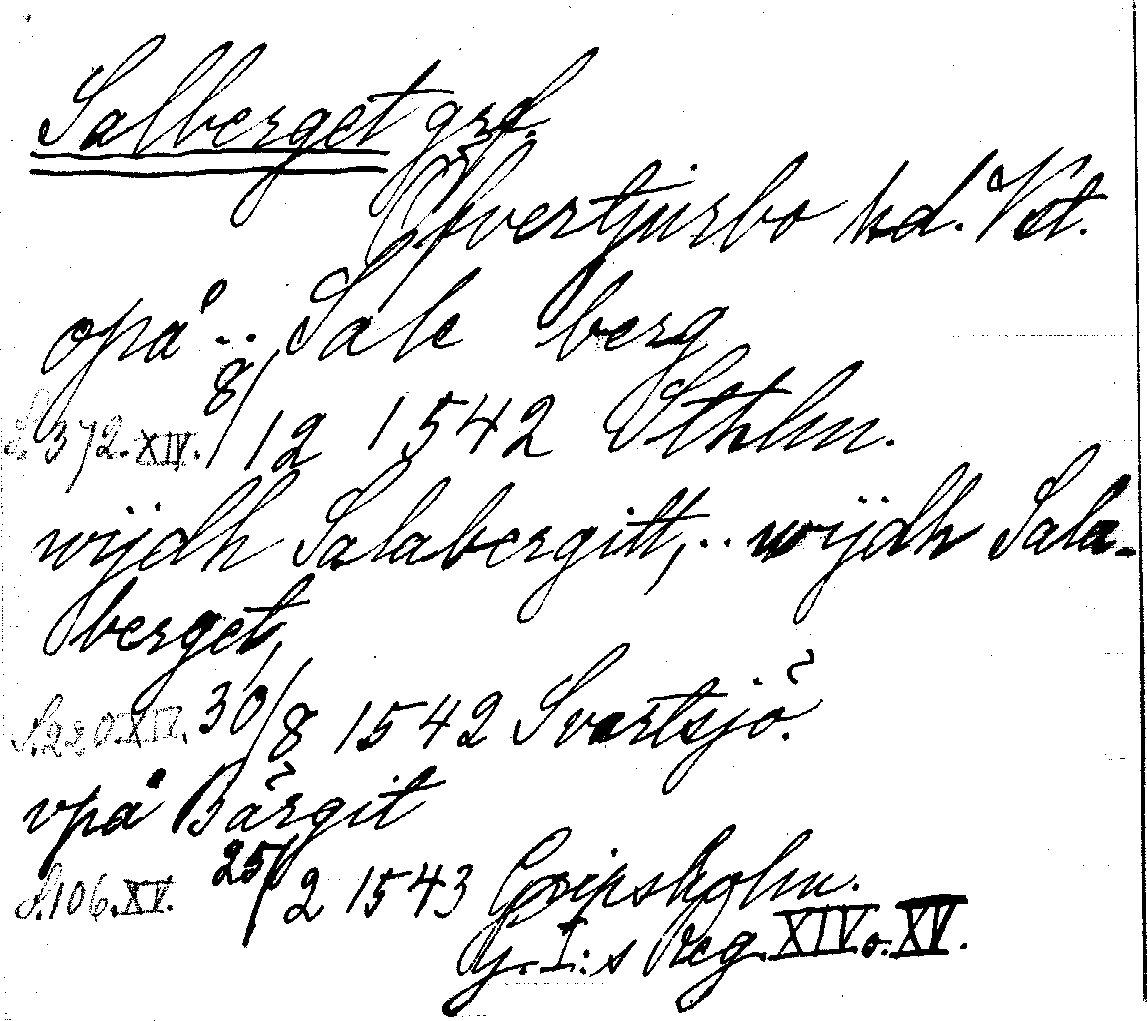 Salberget grd.
Öfvertjurbo hd. Vst.
opå .. Sale berg
S. 372. XIV. 8/12 1542 Sthlm.
wijdh Salabergitt, .. wijdh Sala-
berget,
S. 220. XIV. 30/8 1542 Svartsjö.
vpå Bärgit
S. 106. XV. 25/2 1543 Gripsholm.
G. I:s Reg. XIV o. XV.